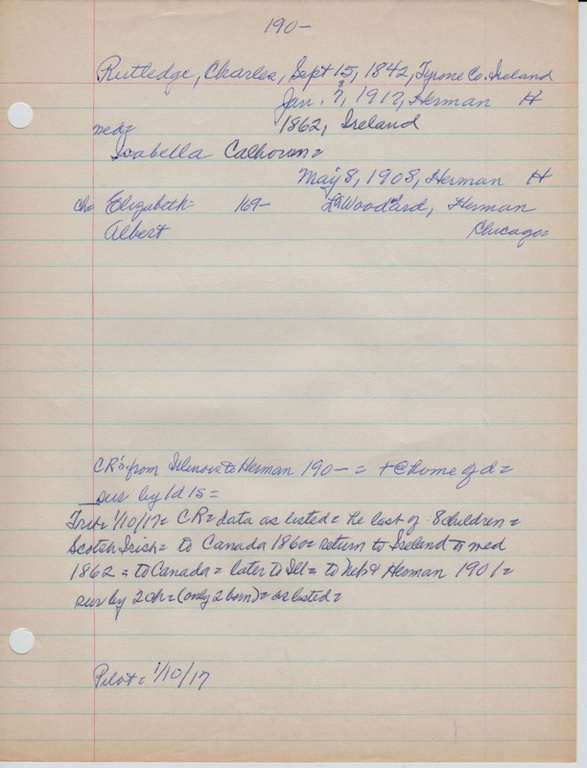 190-
Rutledge, Charles, Sept 15, 1842, Tyrone Co. Ireland
Jan. 7, 1917, Herman H
8
med= 1862, Ireland
Isabella Calhoun=
May 8, 1908, Herman H
ch= Elizabeth= 169- Woodard, Herman
Albert Chicago=
CR's from Illinois to Herman 190-= +@home of d=
sur by 1d 1s=
Trib= 1/10/17= CR= data as listed= he last of 8 children=
Scotch Irish= to Canada 1860= return to Ireland & med
1862= to Canada= later to Ill= to Neb & Herman 1901=
sur by 2ch= (only 2 born)= as listed=
Pilot= 1/10/17